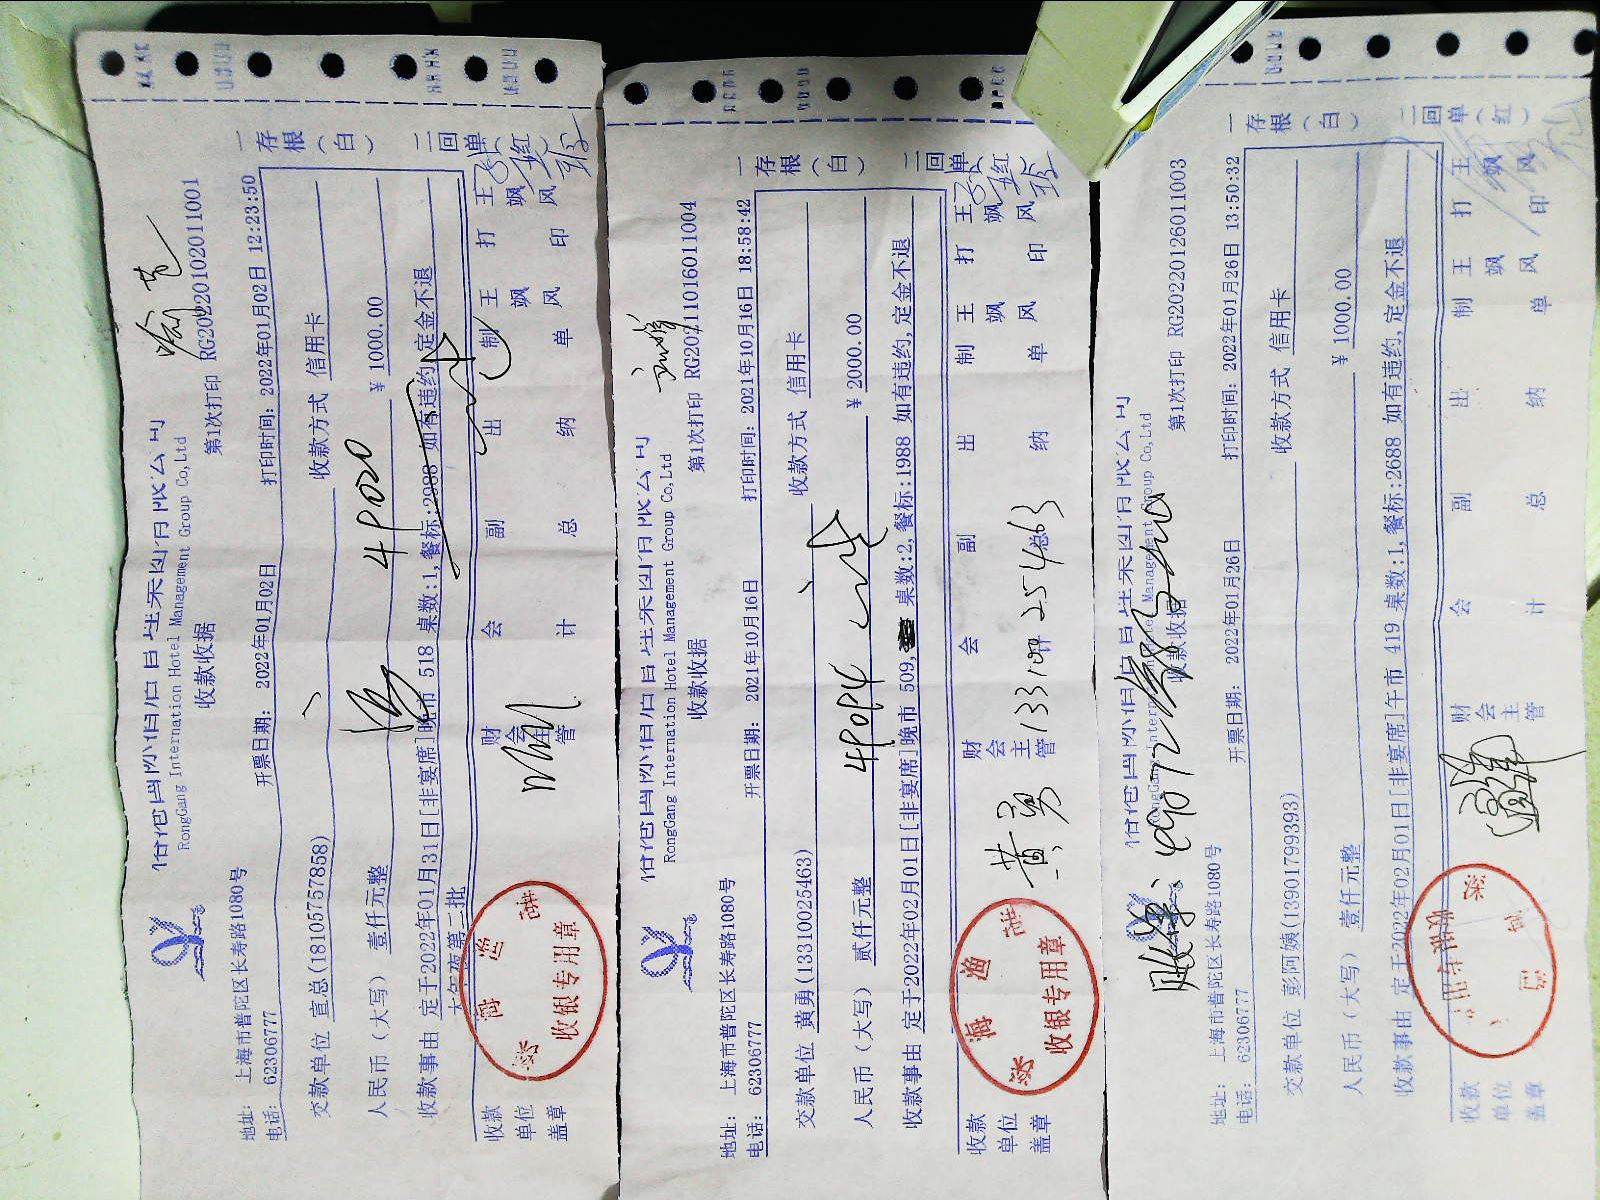 RongGang Internation Hotel Management Group Co,Ltd
收款收据
第1次打印 RG20220102011001
地址： 上海市普陀区长寿路1080号
电话： 62306777
开票日期： 2022年01月02日
打印时间: 2022年01月02日 12:23:50
交款单位 宣总(18105757858)
收款方式 信用卡
人民币（大写） 壹仟元整
¥ 1000.00
4P020
收款事由 定于2022年01月31日[非宴席]晚市 518 桌数:1,餐标:2988 如有违约,定金不退
大年夜第二批
收款单位盖章
收银专用章
财会主管
会计
副总
出纳
制单
王飒风
打印
王飒风
一存根（白）
二回单（红）
RongGang Internation Hotel Management Group Co,Ltd
收款收据
第1次打印 RG20211016011004
地址： 上海市普陀区长寿路1080号
电话： 62306777
开票日期： 2021年10月16日
打印时间: 2021年10月16日 18:58:42
交款单位 黄勇(13310025463)
收款方式 信用卡
人民币（大写） 贰仟元整
¥ 2000.00
4P0P4
收款事由 定于2022年02月01日[非宴席]晚市 509, 桌数:2,餐标:1988 如有违约,定金不退
收款单位盖章
收银专用章
黄勇
财会主管
会
副总
出纳
制单
王飒风
打印
王飒风
一存根（白）
二回单（红）
RongGang Internation Hotel Management Group Co,Ltd
收款收据
第1次打印 RG20220126011003
地址： 上海市普陀区长寿路1080号
电话： 62306777
开票日期： 2022年01月26日
打印时间: 2022年01月26日 13:50:32
交款单位 彭阿姨(13901799393)
收款方式 信用卡
人民币（大写） 壹仟元整
¥ 1000.00
收款事由 定于2022年02月01日[非宴席]午市 419 桌数:1,餐标:2688 如有违约,定金不退
收款单位盖章
财会主管
会计
副总
出纳
制单
王飒风
打印
王飒风
一存根（白）
二回单（红）